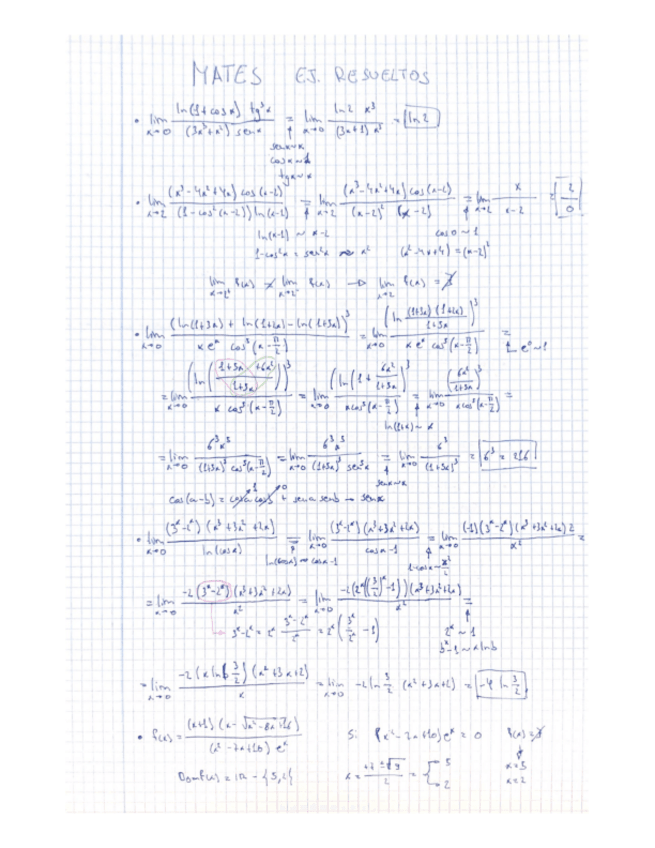 MATES EJ. RESUELTOS
• lim x→0 ln(1+cos x) tg³x / (3x³+x²) sen x = lim x→0 ln2 x³ / (3x+1) x³ = ln 2
sen x ~ x
cos x ~ 1
tg x ~ x
• lim x→2 (x³-4x²+4x) cos(x-2) / (1-cos²(x-2)) ln(x-1) = lim x→2 (x³-4x²+4x) cos(x-2) / (x-2)² (x-2) = lim x→2 x / x-2 = 2/0
ln(x-1) ~ x-2 cos 0 ~ 1
1-cos²x = sen²x ~ x² (x²-4x+4) = (x-2)²
lim x→2⁺ f(x) ≠ lim x→2⁻ f(x) → lim x→2 f(x) = ∄
• lim x→0 (ln(1+3x) + ln(1+2x) - ln(1+5x))³ / x eˣ cos³(x-π/2) = lim x→0 (ln (1+3x)(1+2x) / 1+5x)³ / x eˣ cos³(x-π/2) =
e⁰ ~ 1
= lim x→0 (ln(1+5x+6x² / 1+5x))³ / x cos³(x-π/2) = lim x→0 (ln(1 + 6x² / 1+5x))³ / x cos³(x-π/2) = lim x→0 (6x² / 1+5x)³ / x cos³(x-π/2) =
ln(1+x) ~ x
= lim x→0 6³x³ / (1+5x)³ cos³(x-π/2) = lim x→0 6³x³ / (1+5x)³ sen³x = lim x→0 6³ / (1+5x)³ = 6³ = 216
sen x ~ x
cos(a-b) = cos a cos b + sen a sen b → sen x
• lim x→0 (3ˣ-2ˣ)(x³+3x²+2x) / ln(cos x) = lim x→0 (3ˣ-2ˣ)(x³+3x²+2x) / cos x-1 = lim x→0 (-1)(3ˣ-2ˣ)(x³+3x²+2x) 2 / x² =
ln(cos x) ~ cos x-1 1-cos x ~ x²/2
= lim x→0 -2(3ˣ-2ˣ)(x³+3x²+2x) / x² = lim x→0 -2(2ˣ((3/2)ˣ-1))(x³+3x²+2x) / x² =
3ˣ-2ˣ = 2ˣ 3ˣ-2ˣ / 2ˣ = 2ˣ(3ˣ/2ˣ - 1) 2ˣ ~ 1
bˣ-1 ~ x ln b
= lim x→0 -2(x ln 3/2)(x²+3x+2) / x = lim x→0 -2 ln 3/2 (x²+3x+2) = -4 ln 3/2
• f(x) = (x+1)(x-√x²-8x+16) / (x²-7x+10) eˣ Si (x²-7x+10)eˣ = 0 f(x) = ∄
Dom f(x) = ℝ - {5,2} x = +7 ± √9 / 2 = 5 2 x=5
x=2